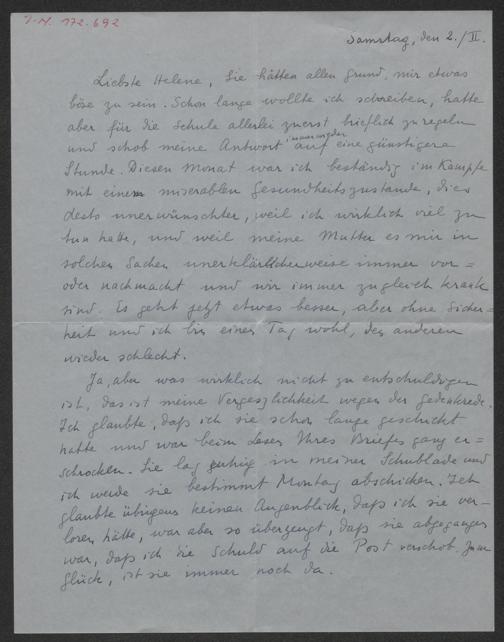 I.N. 172.692
Samstag, den 2./II.
Liebste Helene, Sie hätten allen Grund, mir etwas
böse zu sein. Schon lange wollte ich schreiben, hatte
aber für die Schule allerlei zuerst brieflich zu regeln
und schob meine Antwort immer wieder auf eine günstigere
Stunde. Diesen Monat war ich beständig im Kampfe
mit einem miserablen Gesundheitszustande, dies
desto unerwünschter, weil ich wirklich viel zu
tun hatte, und weil meine Mutter es mir in
solchen Sachen unerklärlicherweise immer vor=
oder nachmacht und wir immer zugleich krank
sind. Es geht jetzt etwas besser, aber ohne Sicher=
heit und ich bin einen Tag wohl, den anderen
wieder schlecht.
Ja, aber was wirklich nicht zu entschuldigen
ist, das ist meine Vergesslichkeit wegen der Gedenkrede.
Ich glaubte, daß ich sie schon lange geschickt
hätte und war beim Lesen Ihres Briefes ganz er=
schrocken. Sie lag ruhig in meiner Schublade und
ich werde sie bestimmt Montag abschicken. Ich
glaubte übrigens keinen Augenblick, daß ich sie ver=
loren hätte, war aber so überzeugt, daß sie abgegangen
war, daß ich die Schuld auf die Post verschob. Zum
Glück, ist sie immer noch da.